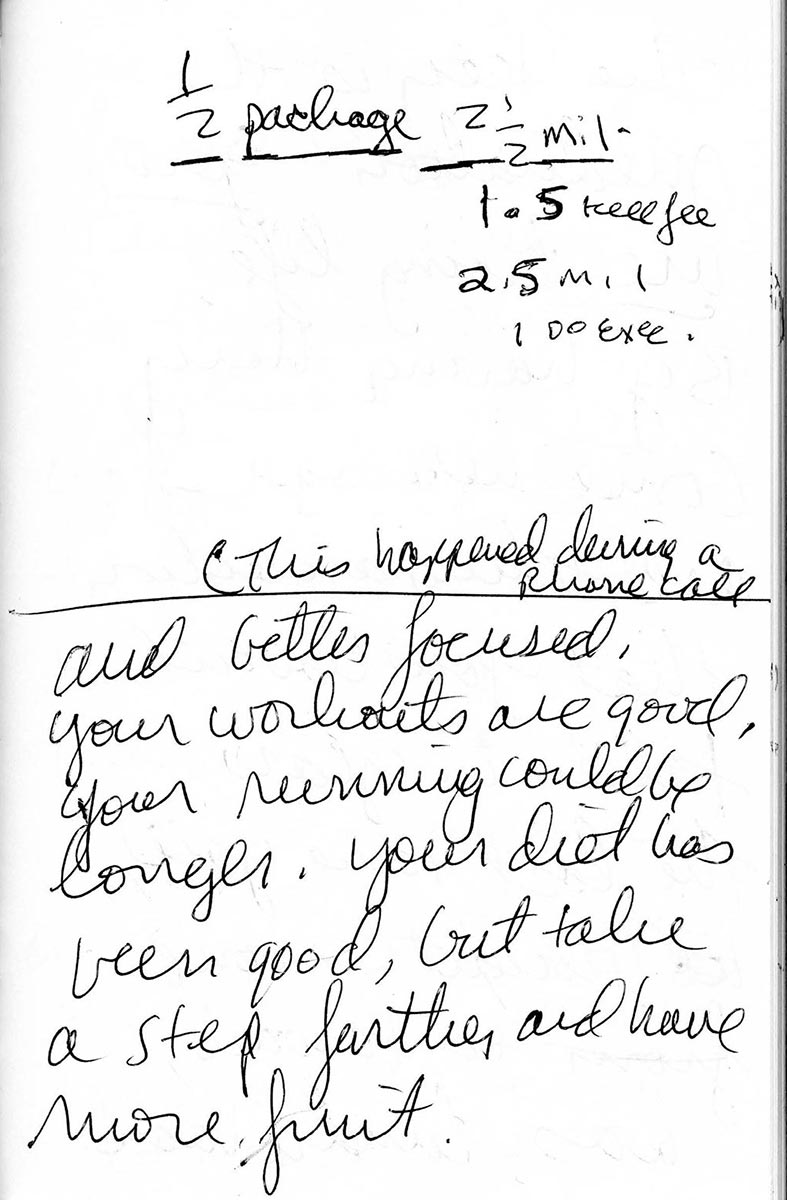 1/2 package 2 1/2 mil.
1.5 kill fee
2.5 mil
100 Exec.
(This happened during a
Phone call
and better focused.
your workouts are good,
your running could be
longer. Your diet has
been good, but take
a step further, and have
more fruit.